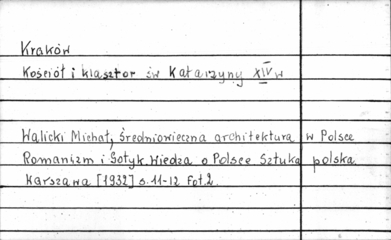 Kraków
Kościół i klasztor św Katarzyny XIV w
Walicki Michał, Średniowieczna architektura w Polsce
Romanizm i Gotyk. Wiedza o Polsce Sztuka polska.
Warszawa [1932] s. 11-12 Fot. 2.